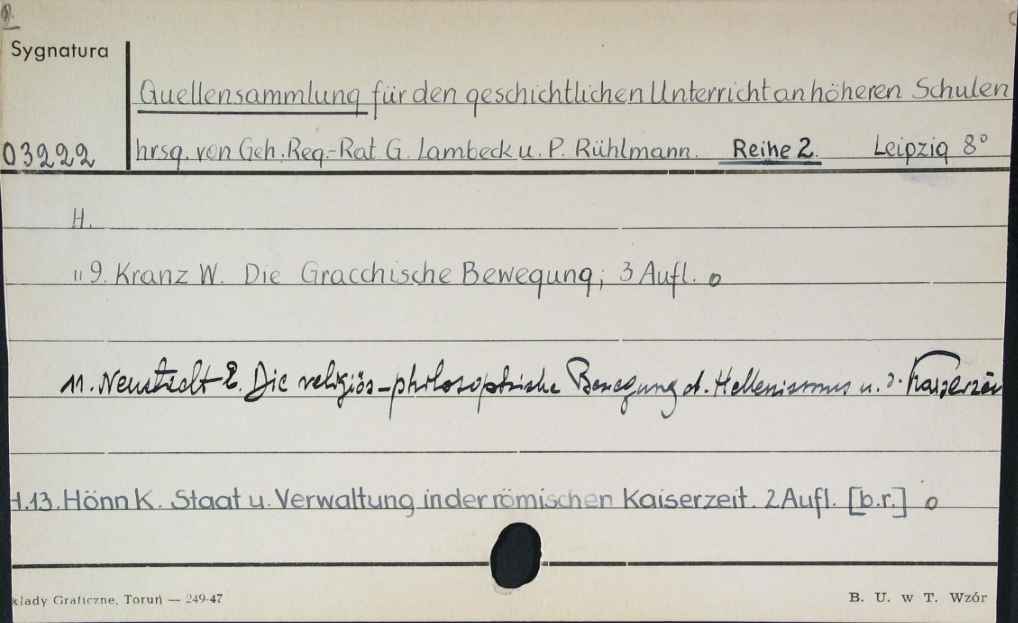 Sygnatura
Quellensammlung für den geschichtlichen Unterricht an höheren Schulen
03222 hrsg. von Geh. Reg.-Rat G. Lambeck u. P. Rühlmann. Reihe 2. Leipzig 8°
H.
" 9. Kranz W. Die Gracchische Bewegung; 3 Aufl. o
11. Neustadt E. Die religiös-philosophische Bewegung d. Hellenismus u. d. Kaiserzei
H.13. Hönn K. Staat u. Verwaltung in der römischen Kaiserzeit. 2 Aufl. [b.r.] o
kłady Graficzne, Toruń — 249-47
B. U. w T. Wzór